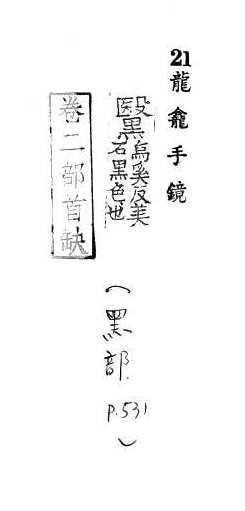 21龍龕手鏡
黳烏奚反美
石黑色也
卷二部首缺
（黑部
P.531）